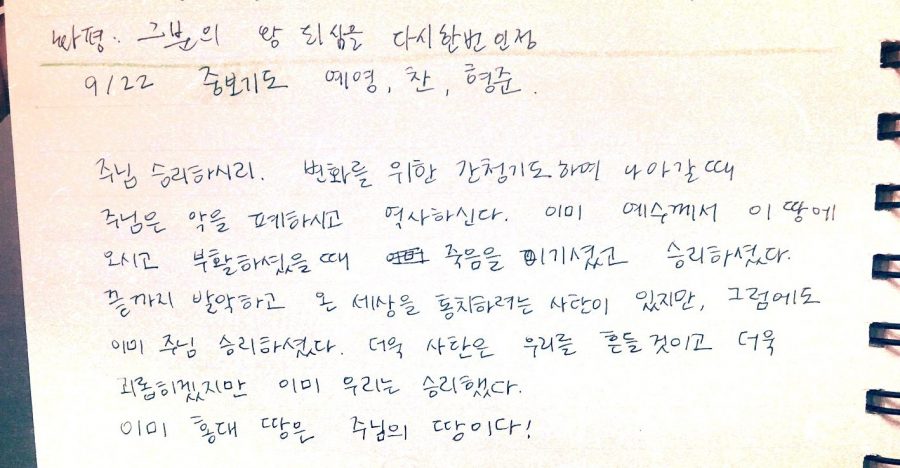 싸평: 그분의 왕 되심을 다시한번 인정
9/22 중보기도 예영, 찬, 형준.
주님 승리하시리. 변화를 위한 간청기도하며 나아갈때
주님은 악을 폐하시고 역사하신다. 이미 예수께서 이 땅에
오시고 부활하셨을때 죽음을 이기셨고 승리하셨다.
끝까지 발악하고 온 세상을 통치하려는 사탄이 있지만, 그럼에도
이미 주님 승리하셨다. 더욱 사탄은 우리를 흔들것이고 더욱
괴롭히겠지만 이미 우리는 승리했다.
이미 홍대 땅은 주님의 땅이다!